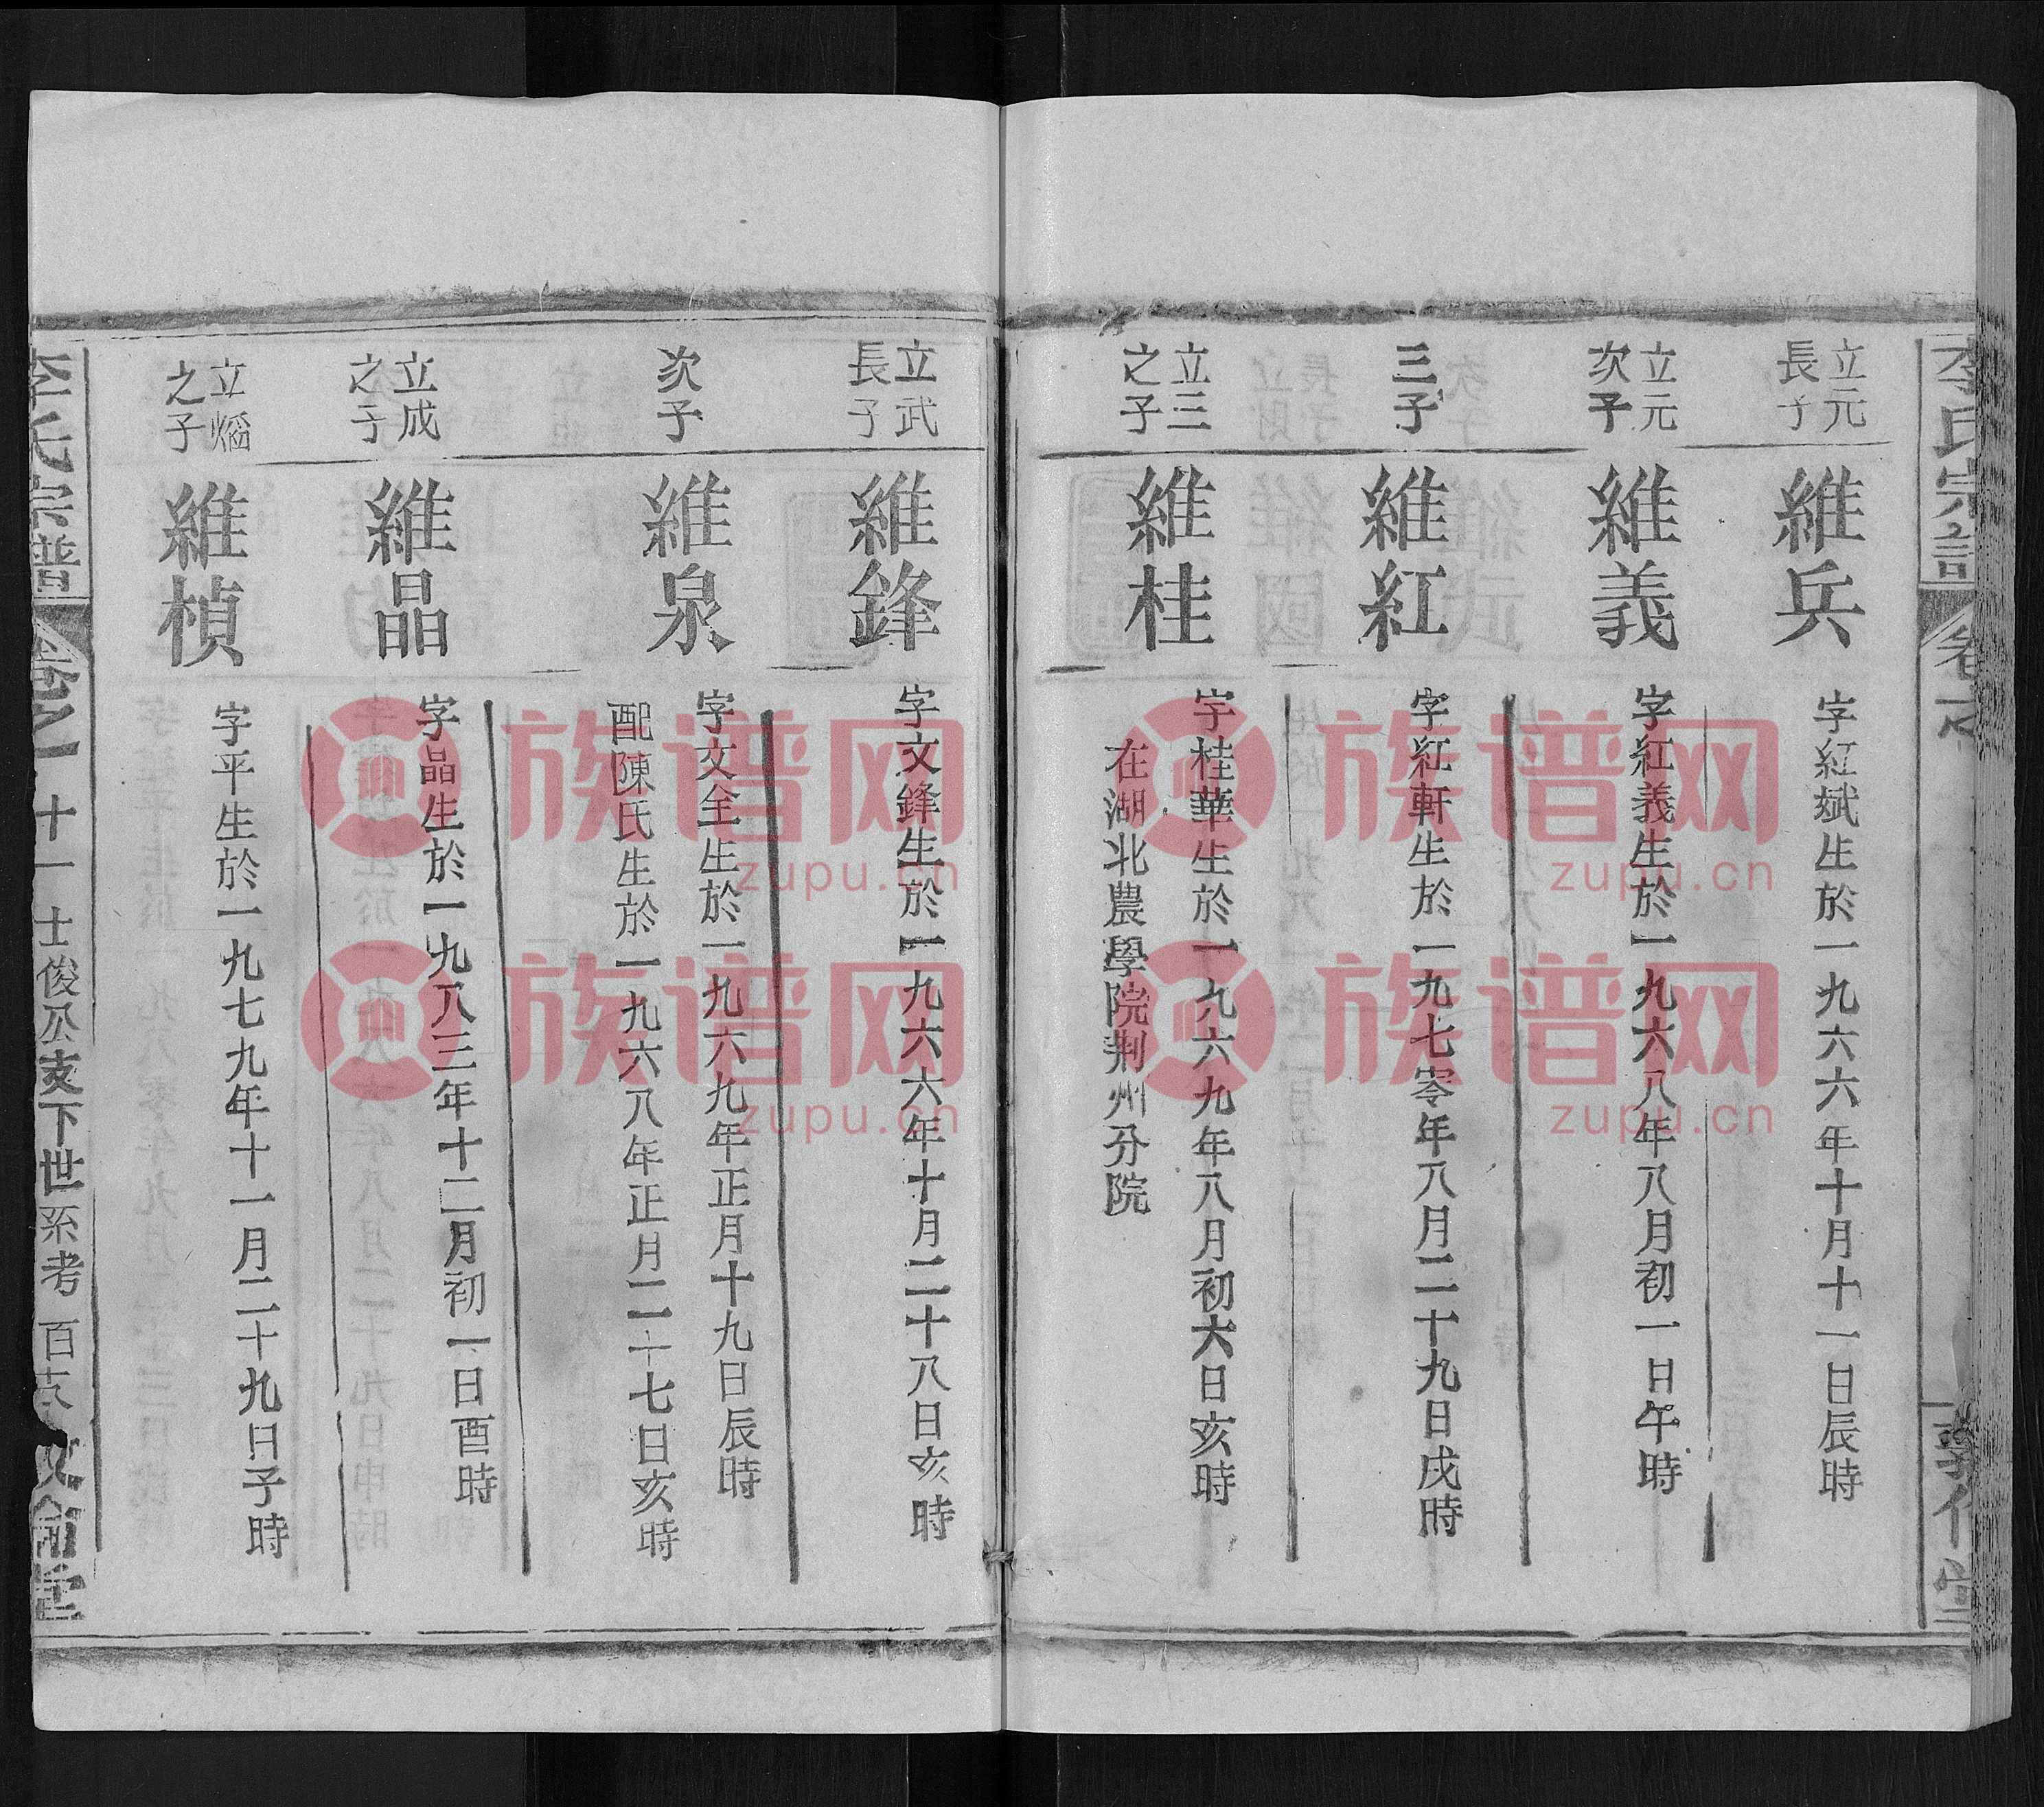 立元
長子
維兵
字紅斌生於一九六六年十月十一日辰時
立元
次子
維義
字紅義生於一九六八年八月初一日午時
三子
維紅
字紅軒生於一九七零年八月二十九日戌時
立三
之子
維桂
字桂華生於一九六九年八月初六日亥時
在湖北農學院荆州分院
立武
長子
維鋒
字文鋒生於一九六六年十月二十八日亥時
次子
維泉
字文全生於一九六九年正月十九日辰時
配陳氏生於一九六八年正月二十七日亥時
立成
之子
維晶
字晶生於一九八三年十二月初一日酉時
立
之子
維楨
字平生於一九七九年十一月二十九日子時
李氏宗譜
卷之一
十一
士俊公支下世系考
百
堂
李氏宗
族谱网
zupu.cn
族谱网
zupu.cn
族谱网
zupu.cn
族谱网
zupu.cn